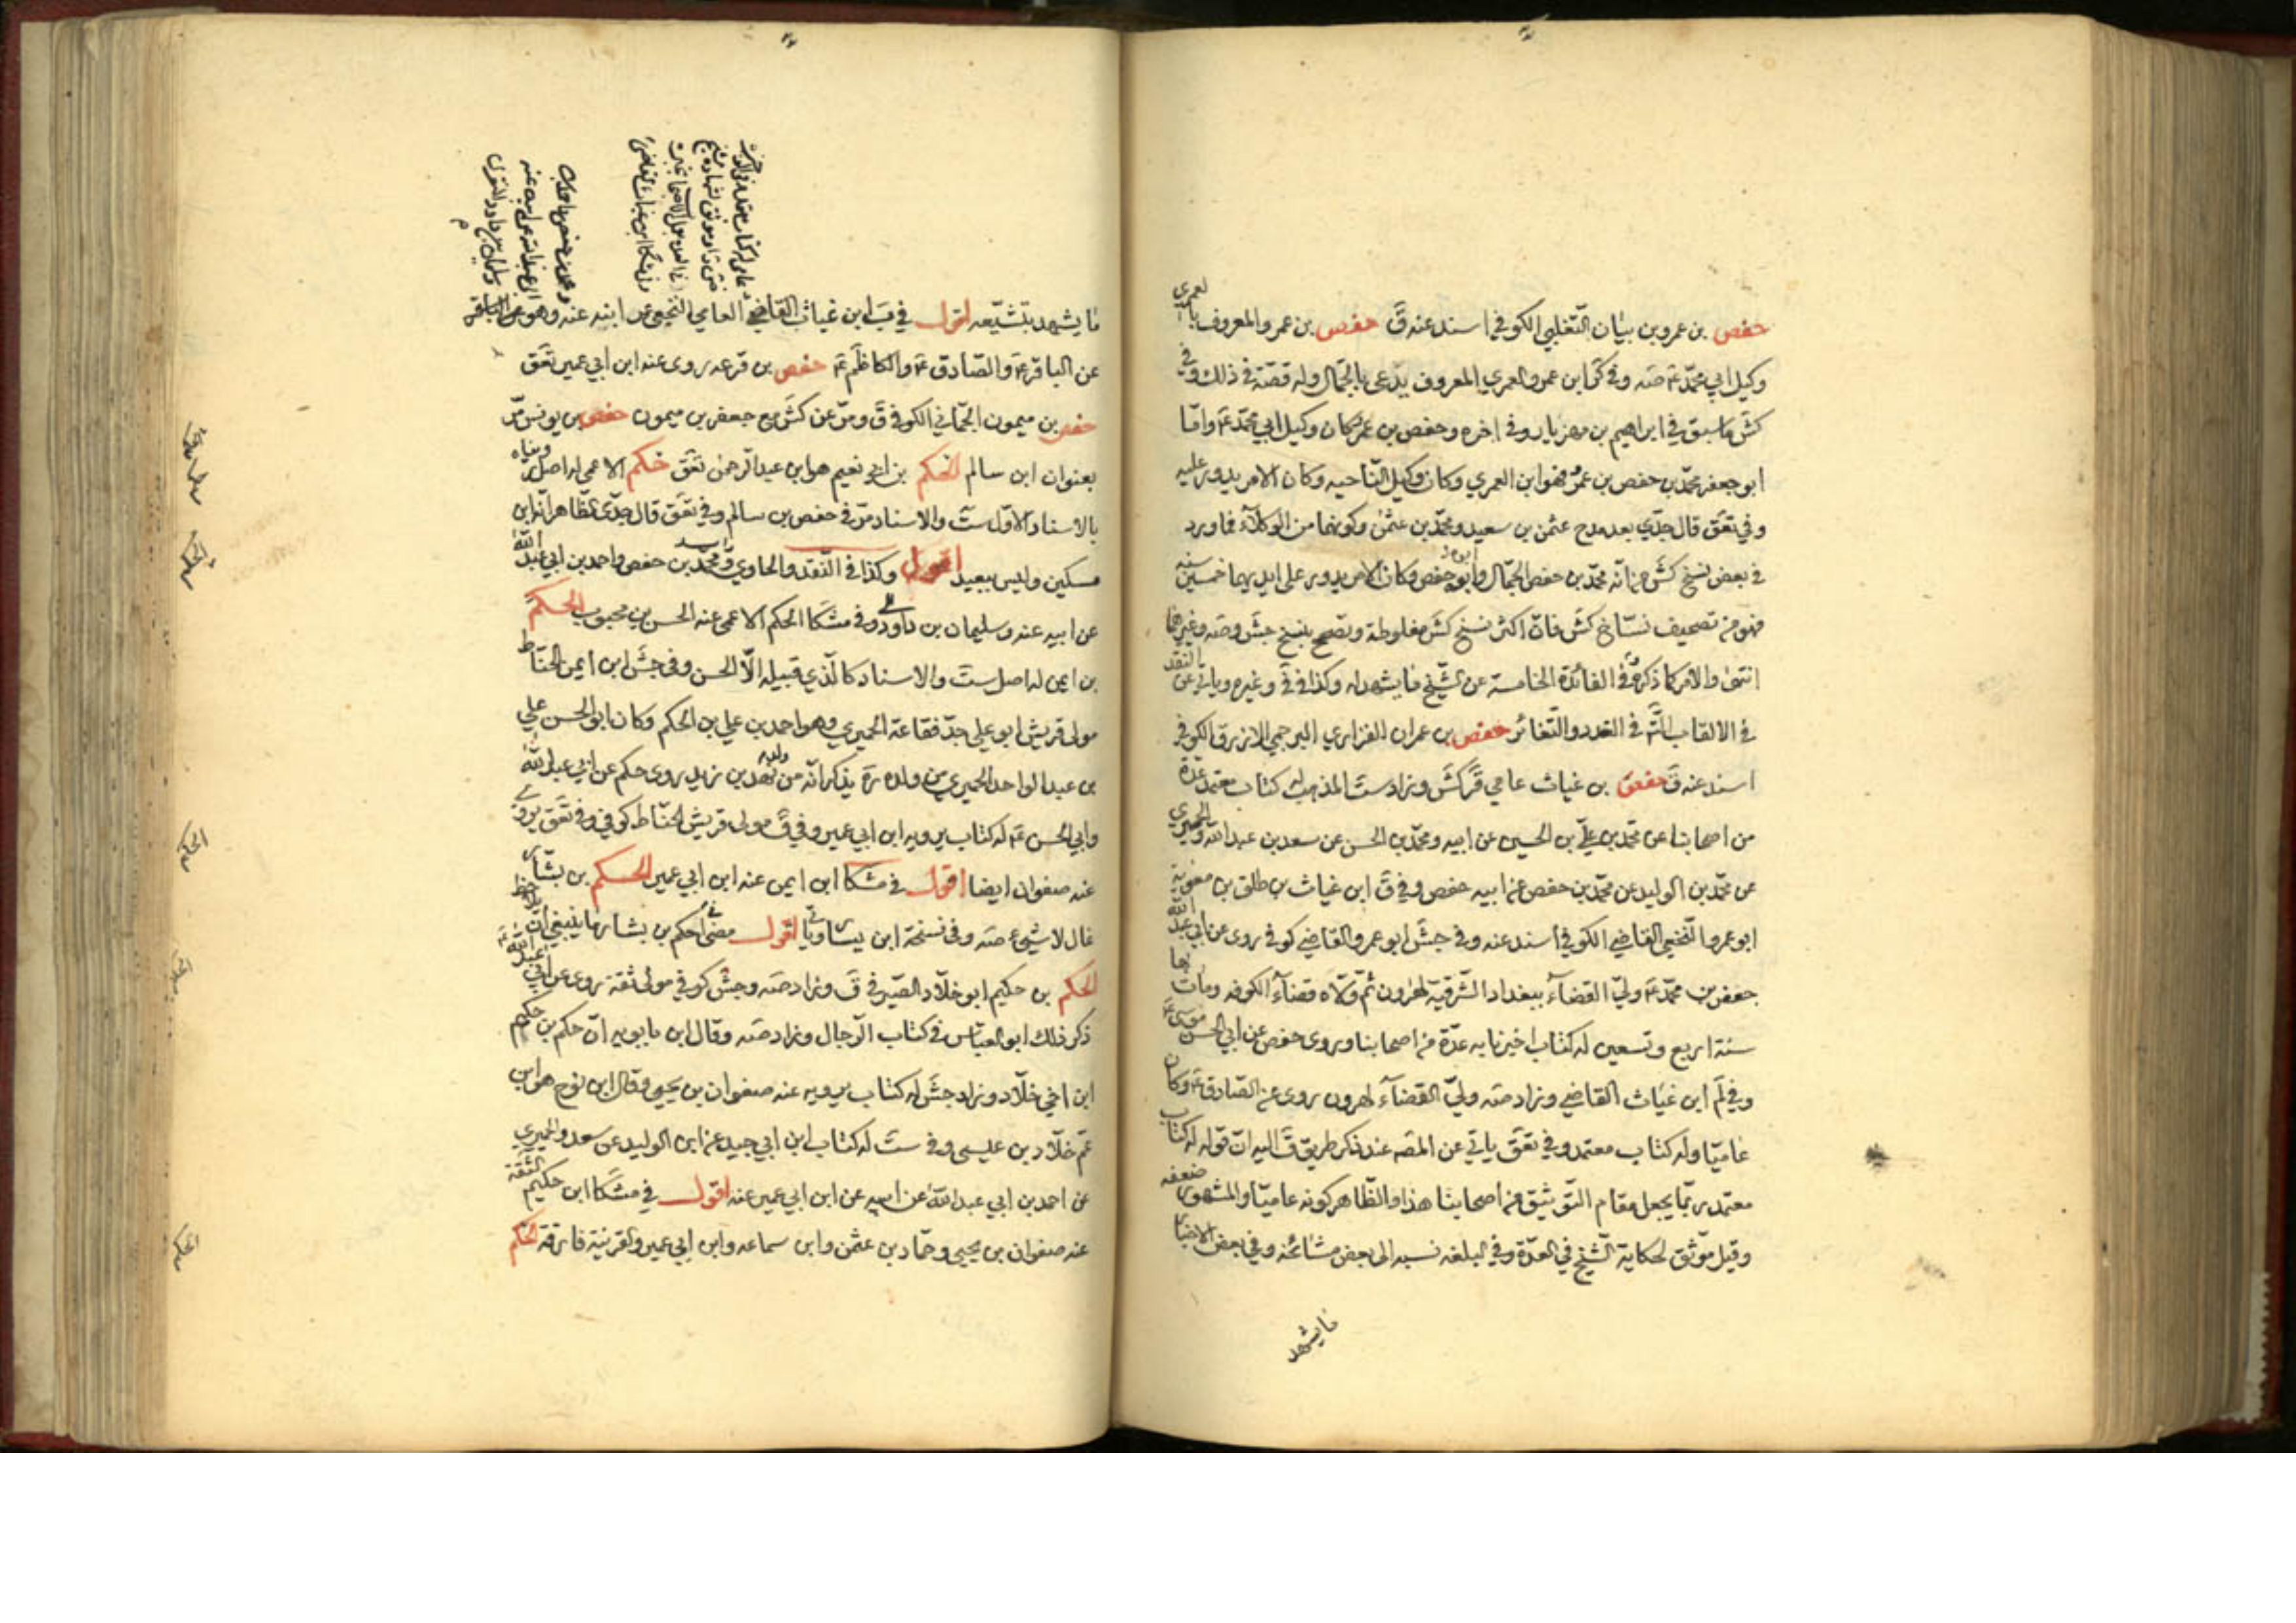 حفص بن عمرو بن بيان التغلبي الكوفي اسند عنه ق حفص بن عمرو المعروف بالعمري
وكيل ابي محمد ع صه وفي كر ابن عمرو العمري المعروف يدعى بالجمال وله قصة في ذلك وفي
كش ما سبق في ابراهيم بن مهزيار وفي اخره وحفص بن عمر كان وكيل ابي محمد ع واما
ابو جعفر محمد بن حفص بن عمر فهو ابن العمري وكان وكيل الناحيه وكان الامر يدور عليه
وفي تعق قال جدي بعد مدح عثمن بن سعيد ومحمد بن عثمن وكونهما من الوكلاء فما ورد
في بعض نسخ كش من انه محمد بن حفص الجمال وابوه حفص وكان الامر يدور على ايديهما خمسين سنه
فهو من تصحيف نساخ كش فان اكثر نسخ كش مغلوطة وتصحح بنسخ جش وصه وغيرهما
انتهى والامر كما ذكره في الفائدة الخامسة عن الشيخ ما يشهد له وكذا في ق وغيره وياتي عن النقد
في الالقاب حفص بن عمران الفزاري البرجمي الازرق الكوفي
اسند عنه ق حفص بن غياث عامي قر كش وزاد ست المذهب له كتاب معتمد عدة
من اصحابنا عن محمد بن علي بن الحسين عن ابيه ومحمد بن الحسن عن سعد بن عبد الله والحميري
عن محمد بن الوليد عن محمد بن حفص عن ابيه حفص وفي ق ابن غياث بن طلق بن معوية
ابو عمر والنخعي القاضي الكوفي اسند عنه وفي جش ابو عمر والقاضي كوفي روى عن ابي عبد الله
جعفر بن محمد ع ولي القضاء ببغداد الشرقية لهرون ثم ولاه قضاء الكوفه ومات بها
سنة اربع وتسعين له كتاب اخبرنا به عدة من اصحابنا وروى حفص عن ابي الحسن موسى ع
وفي لم ابن غياث القاضي وزاد صه ولي القضاء لهرون روى عن الصادق ع وكان
عاميا وله كتاب معتمد وفي تعق ياتي عن المصه عند ذكر طريق ق اليه ان قوله له كتاب
معتمد ربما يجعل مقام التوثيق من اصحابنا هذا والظاهر كونه عاميا والمشهور ضعفه
وقيل موثق لحكاية الشيخ في العدة وفي البلغه نسبه الى بعض مشائخه وفي بعض الاخبار
ما يشهد
ما يشهد بتشيعه اقول في ب ابن غياث القاضي العامي النخعي عن ابنه عنه وهو
عن الباقر ع والصادق ع والكاظم ع حفص بن قرعه روى عنه ابن ابي عمير تعق
حفص بن ميمون الجماني الكوفي ق ومر عن كش مع جعفر بن ميمون حفص بن يونس مر
بعنوان ابن سالم الحكم بن ابي نعيم هو ابن عبد الرحمن تعق حكم الاعمى له اصل رويناه
بالاسناد الاول ست والاسناد مر في حفص بن سالم وفي تعق قال جدي الظاهر انه ابن
مسكين وليس ببعيد اقول وكذا في النقد والحاوي ومحمد بن حفص واحمد بن ابي عبد الله
عن ابيه عنه وسليمان بن داود وفي مشكا الحكم الاعمى عنه الحسن بن محبوب الحكم
بن ايمن له اصل ست والاسناد كالذي قبيله الا الحسن وفي جش ابن ايمن الحناط
مولى قريش ابو علي جد فقاعة الحميري وهو احمد بن علي بن الحكم وكان ابو الحسن علي
بن عبد الواحد الحميري من ولده ره يذكر انه من ولد نهد بن زيد روى حكم عن ابي عبد الله
وابي الحسن ع له كتاب يرويه ابن ابي عمير وفي ق مولى قريش الحناط كوفي وفي تعق يروي
عنه صفوان ايضا اقول في مشكا ابن ايمن عنه ابن ابي عمير الحكم بن بشار
غال لا شيء صه وفي نسخة ابن يسار وياتي اقول مضى في احكم بن بشار ما ينبغي ان يلاحظ
الحكم بن حكيم ابو خلاد الصيرفي ق وزاد صه وجش كوفي مولى ثقة روى عن ابي عبد الله ع
ذكر ذلك ابو العباس في كتاب الرجال وزاد صه وقال ابن بابويه ان حكم بن حكيم
ابن اخي خلاد وزاد جش له كتاب يرويه عنه صفوان بن يحيى وقال ابن نوح هو ابن
عم خلاد بن عليسى وفي ست له كتاب ابن ابي جيد عن ابن الوليد عن سعد والحميري
عن احمد بن ابي عبد الله عن ابيه عن ابن ابي عمير عنه اقول في مشكا ابن حكيم الثقة
عنه صفوان بن يحيى وحماد بن عثمن وابن سماعه وابن ابي عمير والقرينة فارقه الحكم